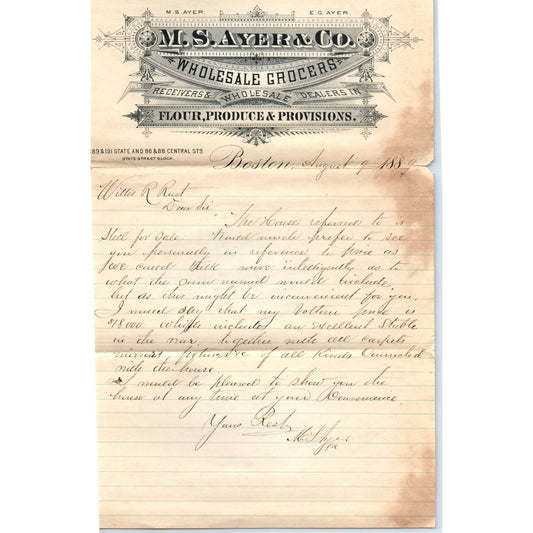 M.S. AYER. E.G. AYER.
M. S. AYER & CO.
WHOLESALE GROCERS
RECEIVERS & WHOLESALE DEALERS IN
FLOUR, PRODUCE & PROVISIONS.
89 & 191 STATE AND 86 & 88 CENTRAL STS.
STATE STREET BLOCK.
Boston, August 9 1889
Willis R Rust
Dear Sir
The House referred to is
Still for Sale. Would much prefer to see
you personally in reference to price as
we could talk more intelligently as to
what the sum named would include,
but as this might be inconvenient for you,
I would say that my bottom price is
$18.000 which includes an excellent Stable
in the rear, together with all carpets
mirrors fixtures &c of all Kinds Connected
with the house.
I would be pleased to show you the
house at any time at your Convenience.
Yours Rest.
M. S. Ayer